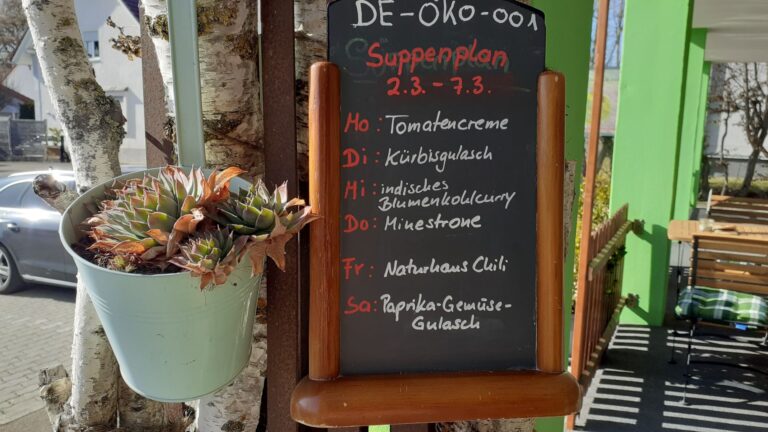 DE-ÖKO-001
Suppenplan
2.3. - 7.3.
Mo: Tomatencreme
Di: Kürbisgulasch
Mi: indisches
Blumenkohlcurry
Do: Minestrone
Fr: Naturhaus Chili
Sa: Paprika-Gemüse-
Gulasch